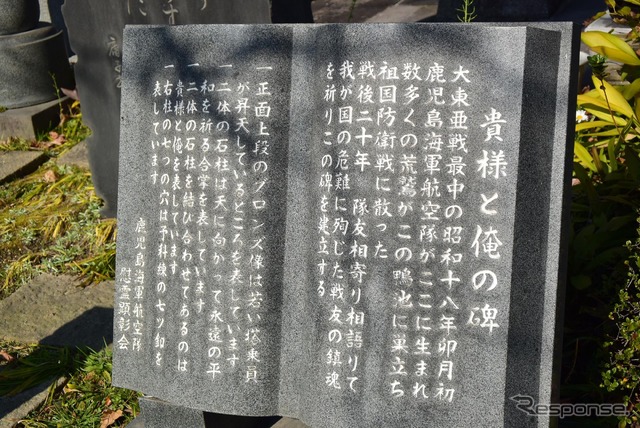 貴様と俺の碑
大東亜戦最中の昭和十八年卯月初
鹿児島海軍航空隊がここに生まれ
数多くの荒鷲がこの鴨池に巣立ち
祖国防衛戦に散った
戦後二十年 隊友相寄り相語りて
我が国の危難に殉じた戦友の鎮魂
を祈りこの碑を建立する
一正面上段のブロンズ像は若い搭乗員
が昇天しているところを表しています
一二体の石柱は天に向かって永遠の平
和を祈る合掌を表しています
一二体の石柱を結び合わせてあるのは
貴様と俺を表しています
一右柱の七つの穴は予科練の七ツ釦を
表しています
鹿児島海軍航空隊
慰霊顕彰会
Response.